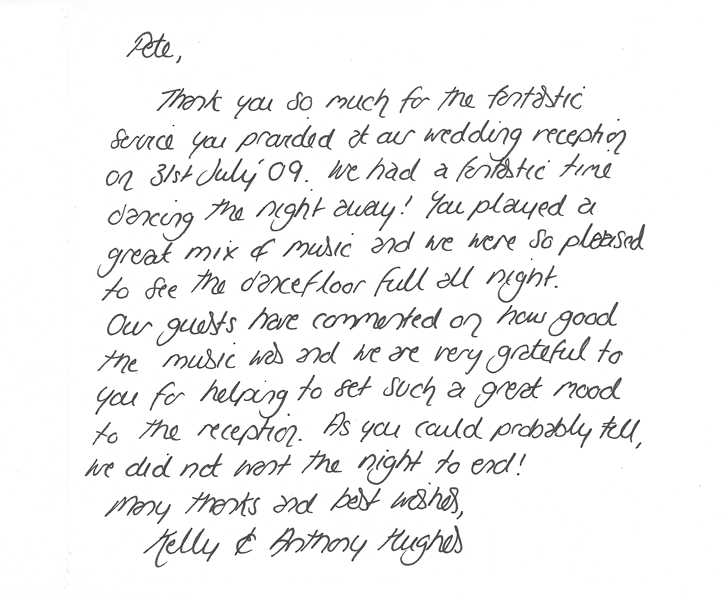 Pete,
Thank you so much for the fantastic
service you provided at our wedding reception
on 31st July '09. We had a fantastic time
dancing the night away! You played a
great mix of music and we were so pleased
to see the dancefloor full all night.
Our guests have commented on how good
the music was and we are very grateful to
you for helping to set such a great mood
to the reception. As you could probably tell,
we did not want the night to end!
Many thanks and best wishes,
Kelly & Anthony Hughes